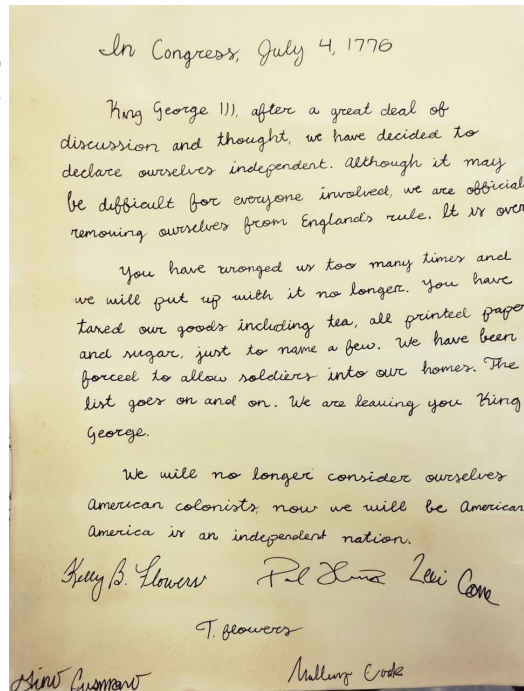 In Congress, July 4, 1776
King George III, after a great deal of
discussion and thought, we have decided to
declare ourselves independent. Although it may
be difficult for everyone involved, we are official
removing ourselves from England's rule. It is over
You have wronged us too many times and
we will put up with it no longer. You have
taxed our goods including tea, all printed pape
and sugar, just to name a few. We have been
forced to allow soldiers into our homes. The
list goes on and on. We are leaving you King
George.
We will no longer consider ourselves
American colonists, now we will be American
America is an independent nation.
Kelly B. Flowers
T. Flowers
Cook